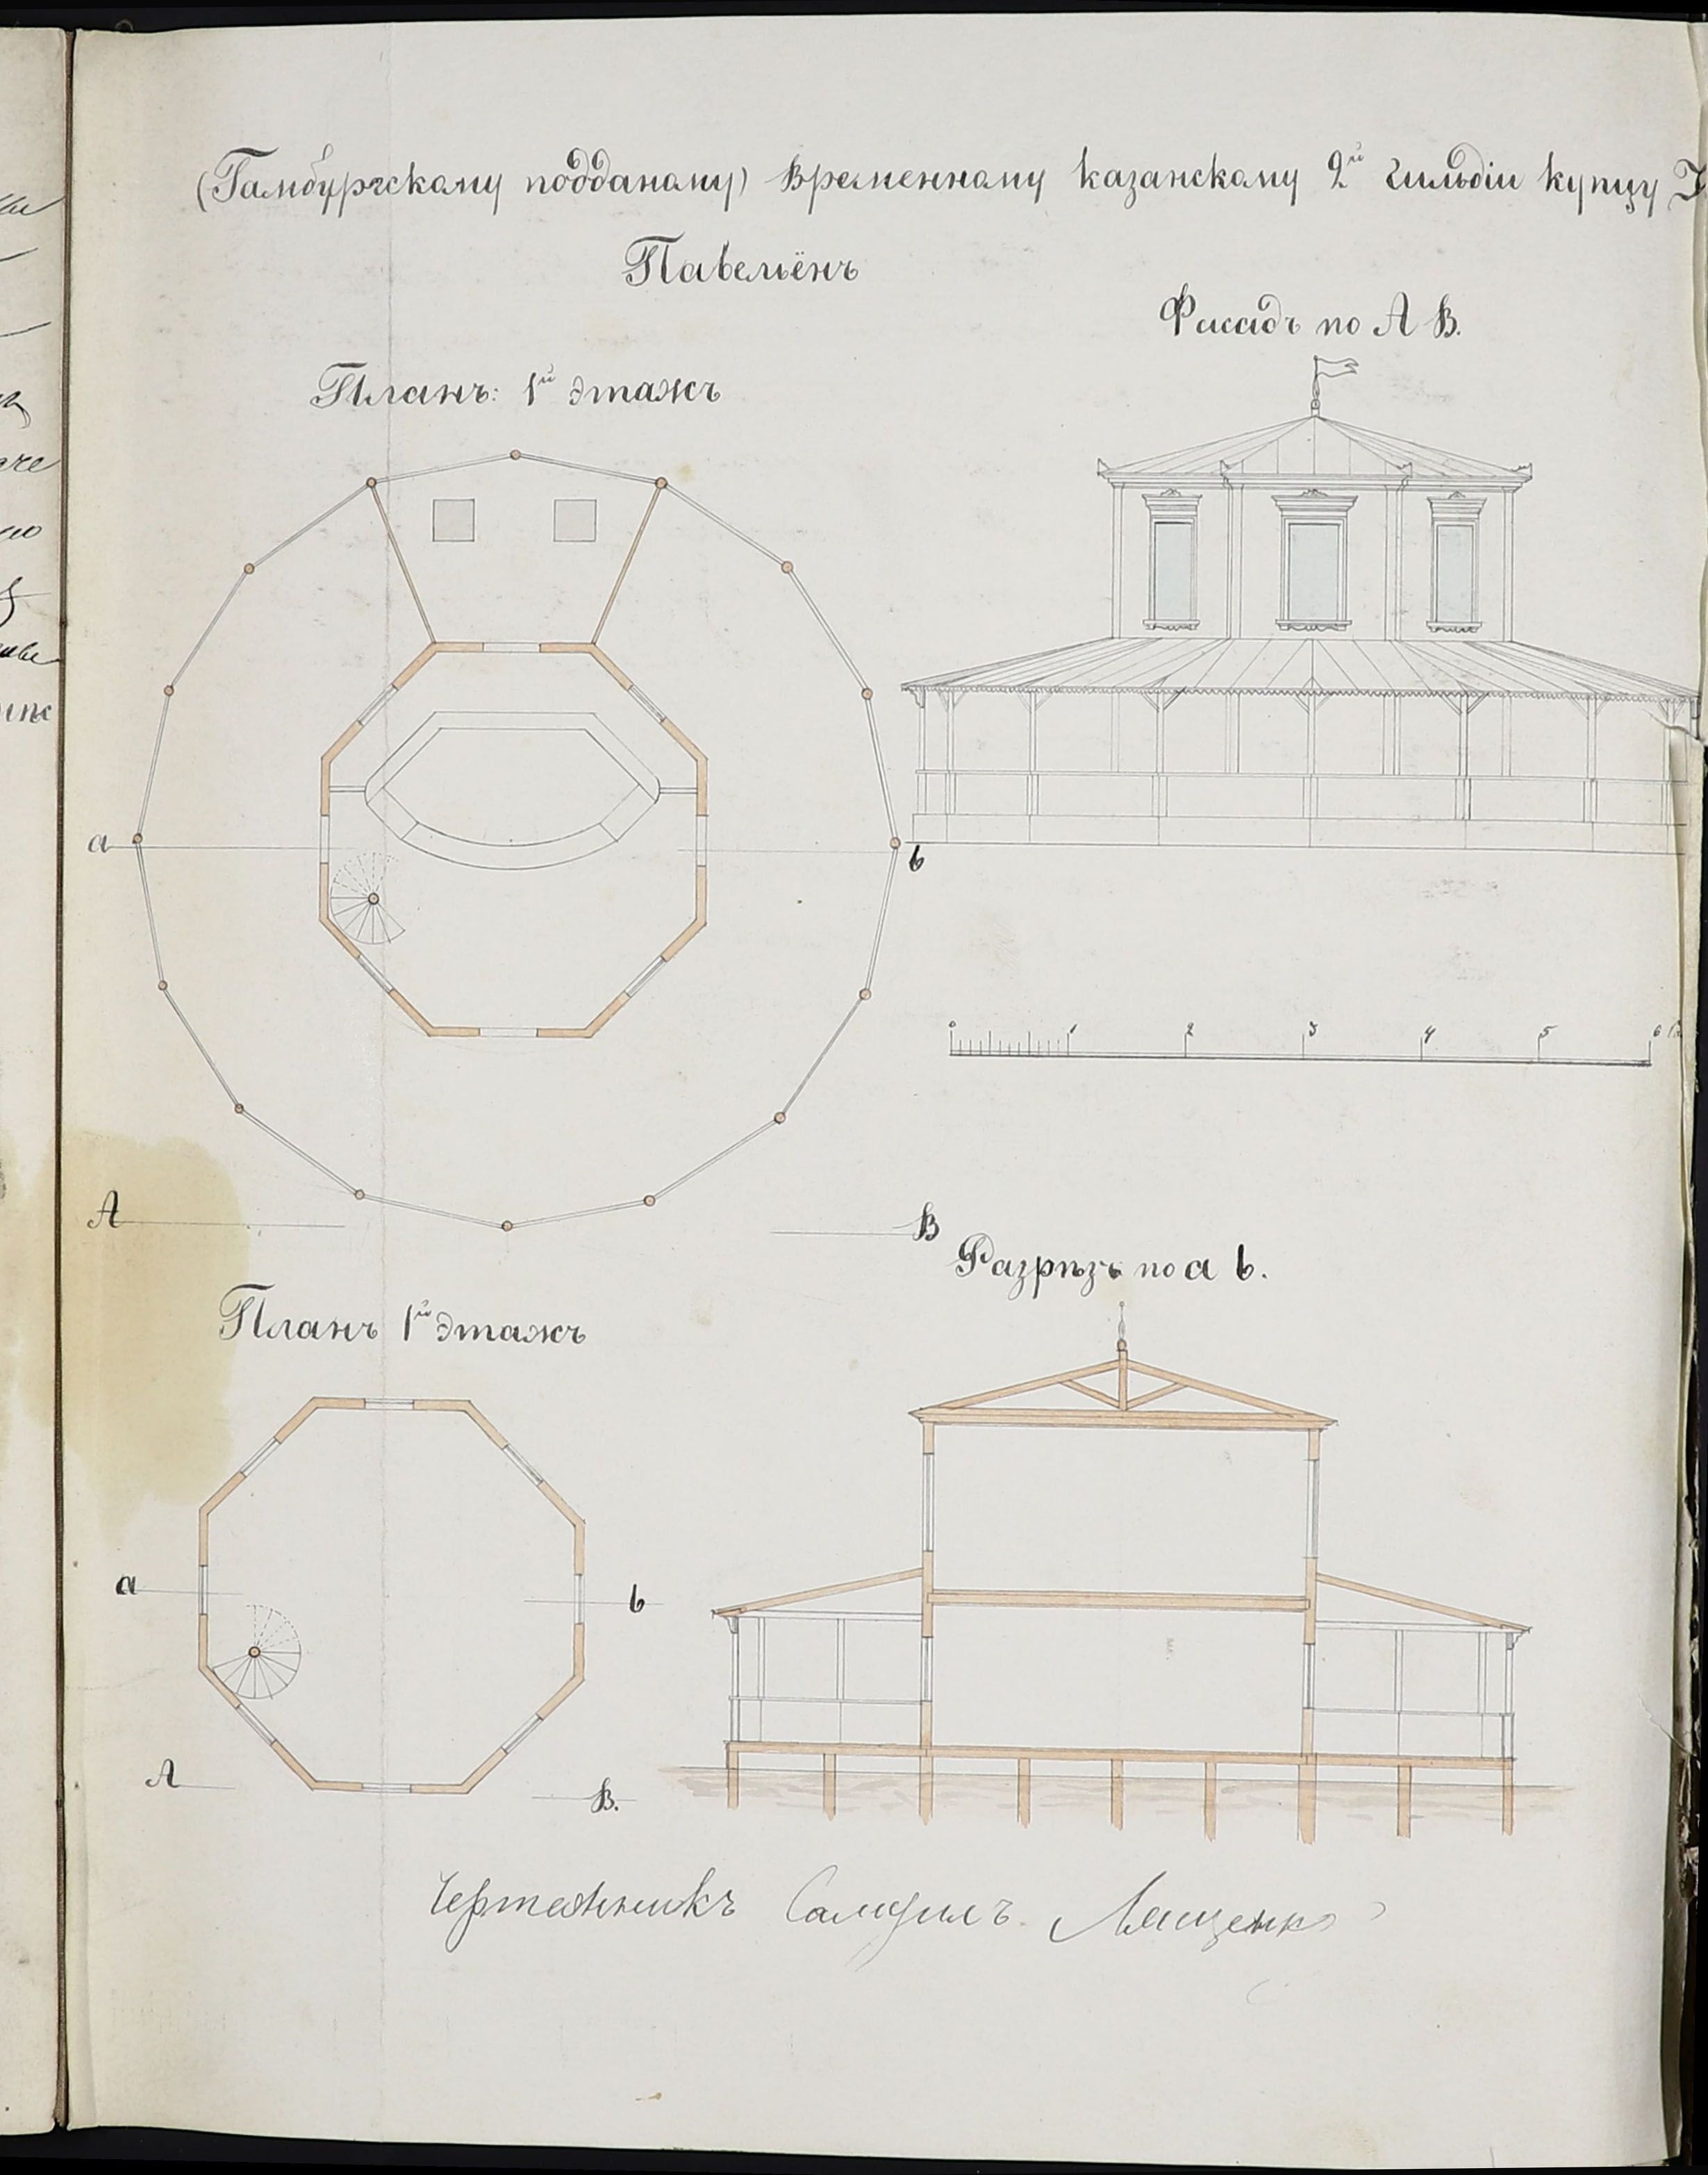 (Гамбургскому подданому) временному казанскому 2й гильдіи купцу
Павельёнъ
Фасадъ по А В.
Планъ: 1й этажъ
a b
0 1 2 3 4 5 6
А В
Разрѣзъ по a b.
Планъ 1й этажъ
a b
А В.
Чертежникъ Самуилъ Лященко